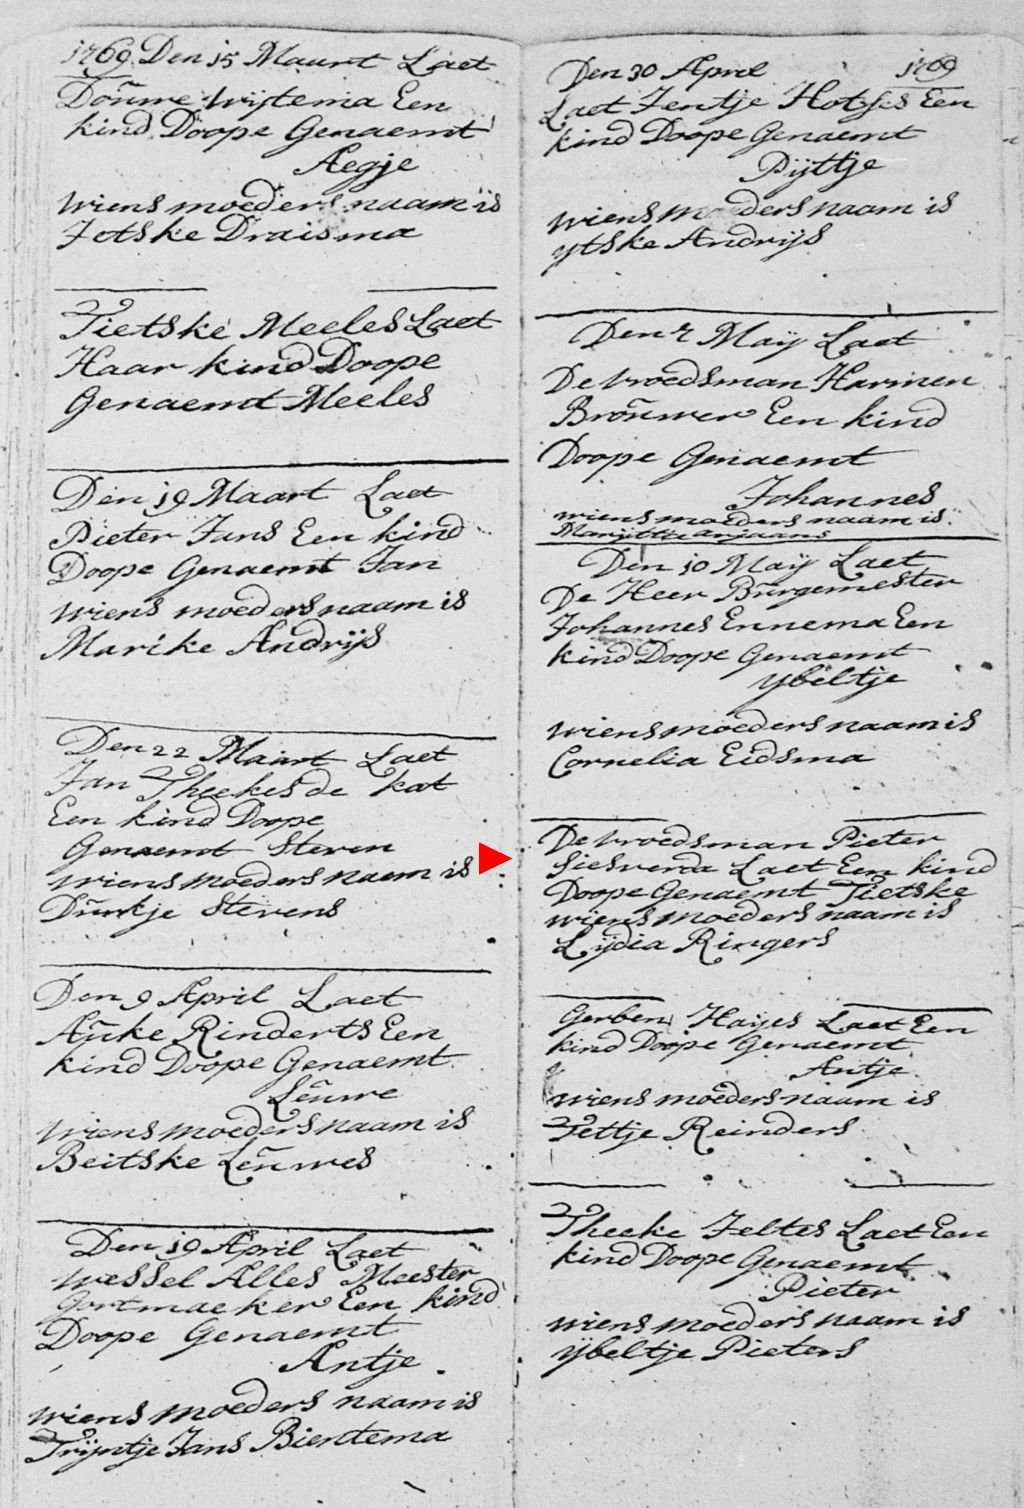 1769. Den 15 Maart Laet
Doũwe Wijtema Een
kind Doope Genaemt
Aegje
wiens moeders naam is
Jetske Draisma
Tietske Meeles Laet
Haar kind Doope
Genaemt Meeles
Den 19 Maart Laet
Pieter Jans Een kind
Doope Genaemt Jan
wiens moeders naam is
Marike Andrijs
Den 22 Maart Laet
Jan Theekes de kat
Een kind Doope
Genaemt Steven
wiens moeders naem is
Dũwkje Stevens
Den 9 April Laet
Aũke Rinderts Een
kind Doope Genaemt
Leũwe
wiens moeders naam is
Beitske Leũwes
Den 19 April Laet
Wessel Alles Meester
Gortmaeker Een kind
Doope Genaemt
Antje
wiens moeders naam is
Trijntje Jans Bientema
Den 30 April 1769
Laet Jentje Hotses Een
kind Doope Genaemt
Pijttje
wiens moeders naam is
ytske Andrijs
Den 7 Maij Laet
De vroedsman Harmen
Broũwer Een kind
Doope Genaemt
Johannes
wiens moeders naam is
Den 10 Maij Laet
De Heer Bũrgemester
Johannes Ennema Een
kind Doope Genaemt
ybeltje
wiens moeders naam is
Cornelia Eidsma
De vroedsman Pieter
Siesverda Laet Een kind
Doope Genaemt Tietske
wiens moeders naam is
Lydia Ringers
Gerben Haijes Laet Een
kind Doope Genaemt
Antje
wiens moeders naam is
Jettje Reinders
Theeke Jeltes Laet Een
kind Doope Genaemt
Pieter
wiens moeders naam is
ijbeltje Pieters